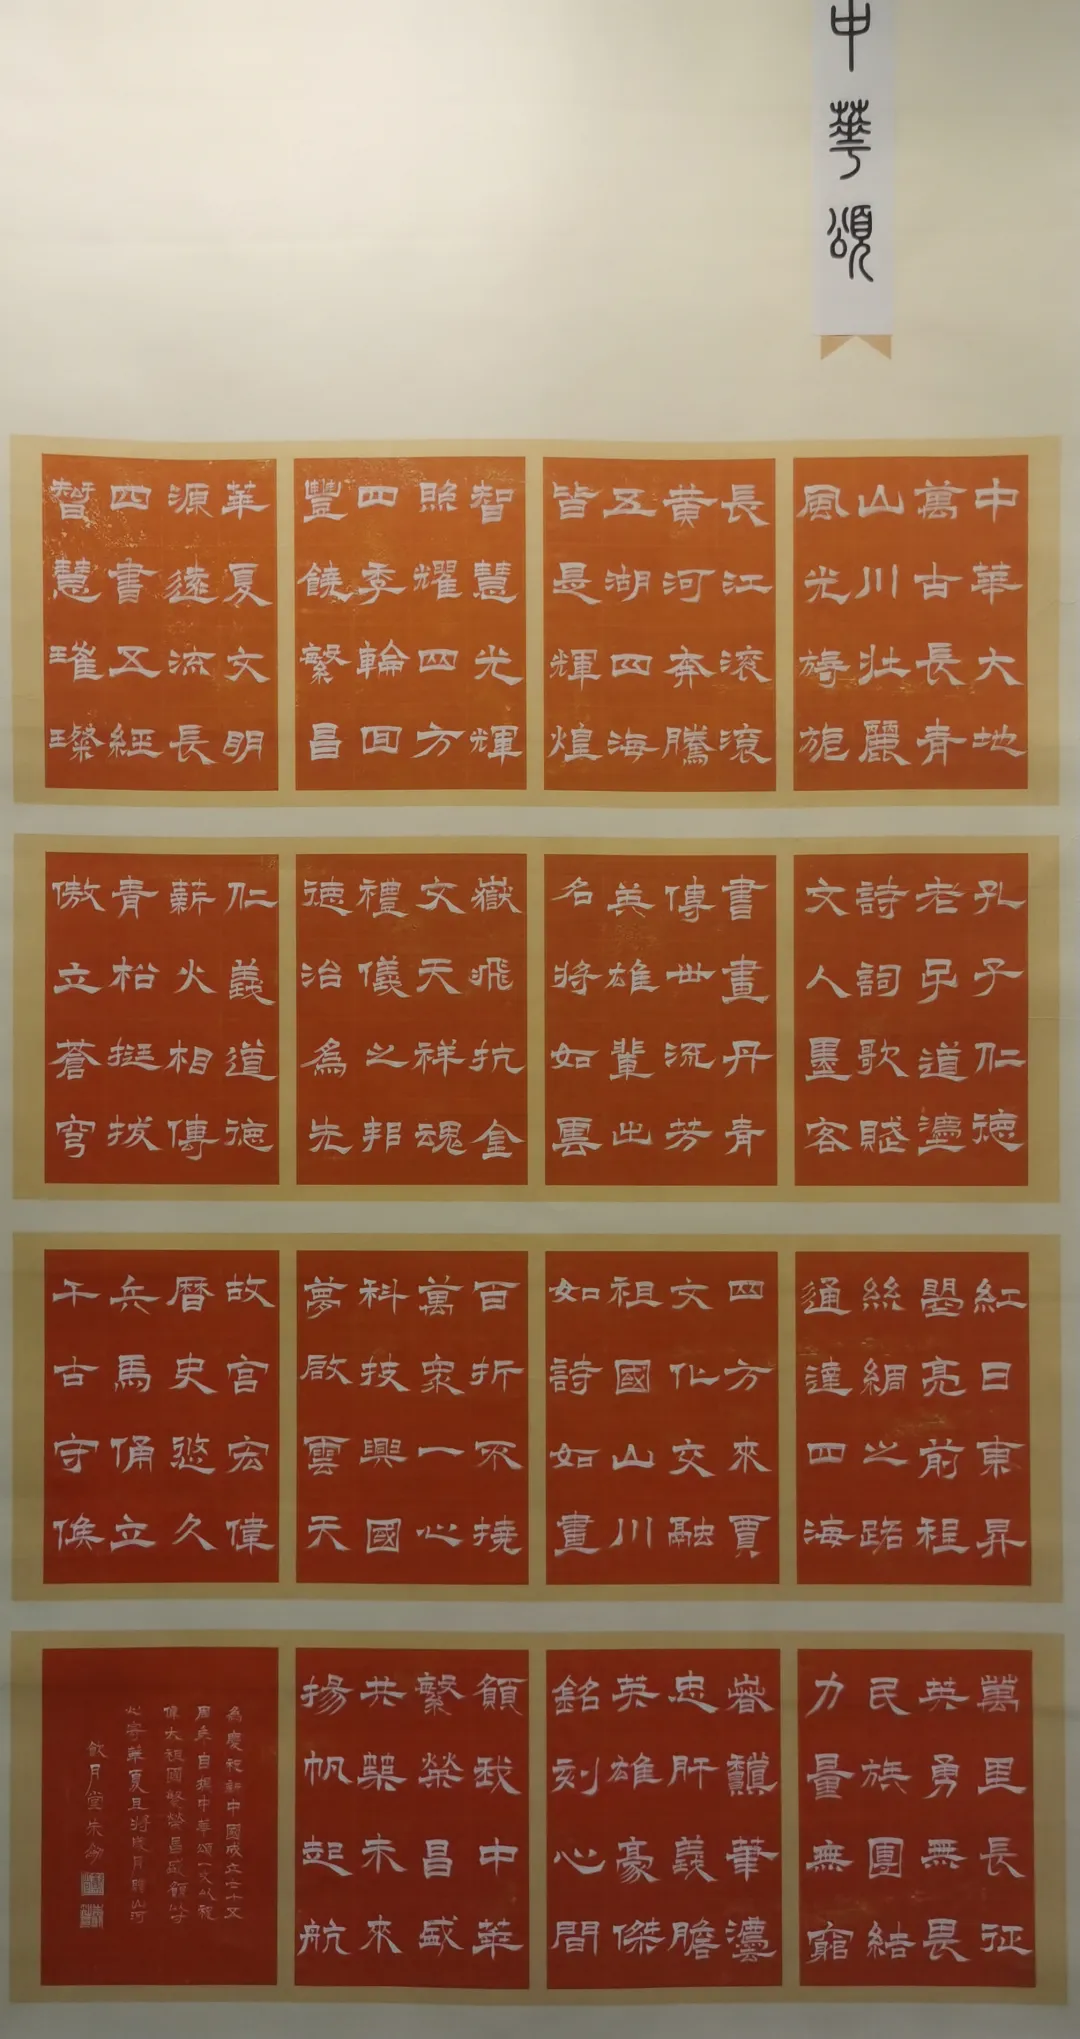 中華頌
中華大地
萬古長青
山川壯麗
風光旖旎
長江滾滾
黃河奔騰
五湖四海
皆是輝煌
智慧光輝
照耀四方
四季輪回
豐饒繁昌
華夏文明
源遠流長
四書五經
智慧璀璨
孔子仁德
老子道
詩詞歌賦
文人墨客
書畫丹青
傳世流芳
英雄輩出
名將如雲
嶽飛抗金
文天祥魂
禮儀之邦
德治為先
仁義道德
薪火相傳
青松挺拔
傲立蒼穹
紅日東昇
照亮前程
絲綢之路
通達四海
四方來賈
文化交融
祖國山川
如詩如畫
百折不撓
萬眾一心
科技興國
夢啟雲天
故宮宏偉
曆史悠久
兵馬俑立
千古守候
萬里長征
英勇無畏
民族團結
力量無窮
忠肝義膽
英雄豪傑
銘刻心間
願我中華
繁榮昌盛
共築未來
揚帆起航
為慶祝新中國成立七十五
周年自撰中華頌一文以祝
偉大祖國繁榮昌盛願以
心寄華夏且將歲月贈山河
飲月堂朱